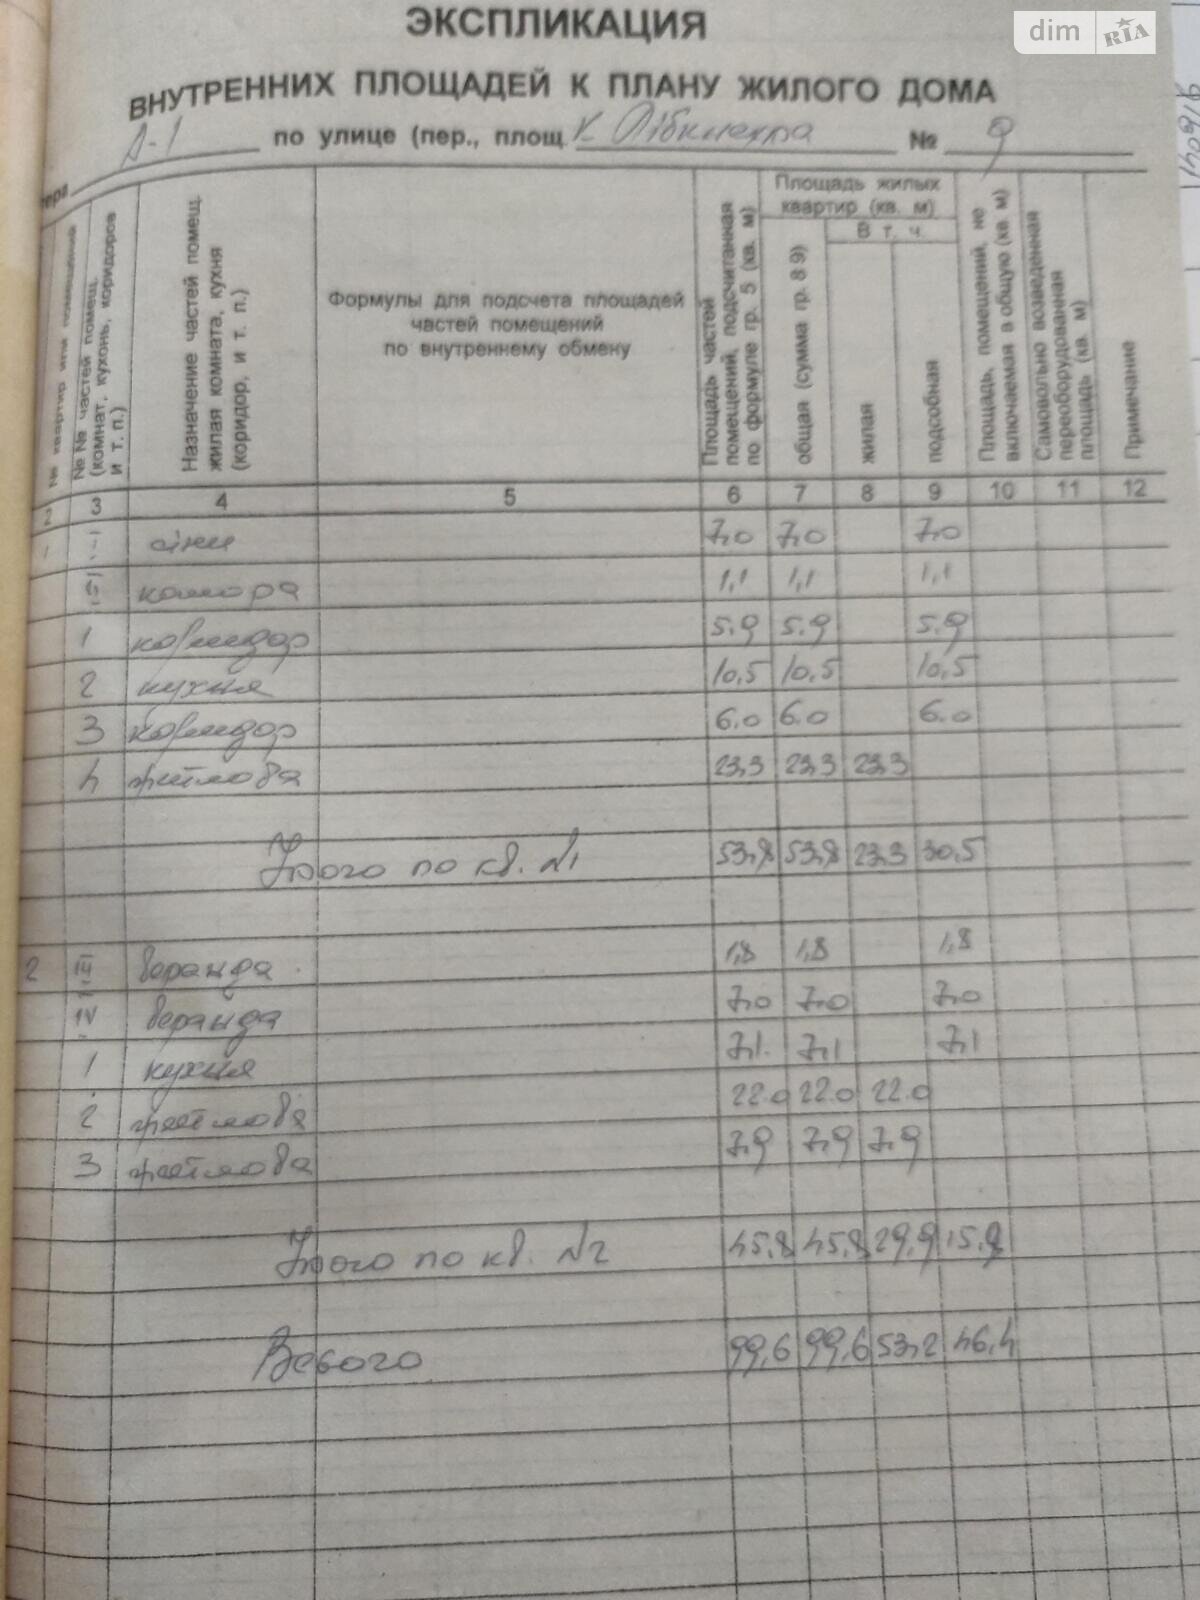 ЭКСПЛИКАЦИЯ
dim RIA
ВНУТРЕННИХ ПЛОЩАДЕЙ К ПЛАНУ ЖИЛОГО ДОМА
А-1 по улице (пер., площ. К. Лібкнехта № 9
№ квартир или помещений
№ № частей помещ. (комнат, кухонь, коридоров и т. п.)
Назначение частей помещ. жилая комната, кухня (коридор, и т. п.)
Формулы для подсчета площадей
частей помещений
по внутреннему обмену
Площадь частей помещений, подсчитанная по формуле гр. 5 (кв. м)
Площадь жилых
квартир (кв. м)
общая (сумма гр. 8 9)
В т. ч.
жилая
подобная
Площадь, помещений, не включаемая в общую (кв. м)
Самовольно возведенная переоборудованная площадь (кв. м)
Примечание
2 3 4 5 6 7 8 9 10 11 12
1 I сіни 7,0 7,0 7,0
II комора 1,1 1,1 1,1
1 коридор 5.9 5.9 5.9
2 кухня 10,5 10,5 10,5
3 коридор 6.0 6.0 6.0
4 житлова 23,3 23,3 23,3
Итого по кв. №1 53,8 53,8 23,3 30,5
2 III веранда 1,8 1,8 1,8
IV веранда 7,0 7,0 7,0
1 кухня 7,1 7,1 7,1
2 житлова 22.0 22.0 22.0
3 житлова 7,9 7,9 7,9
Итого по кв. №2 45,8 45,8 29,9 15,9
Всього 99,6 99,6 53,2 46,4